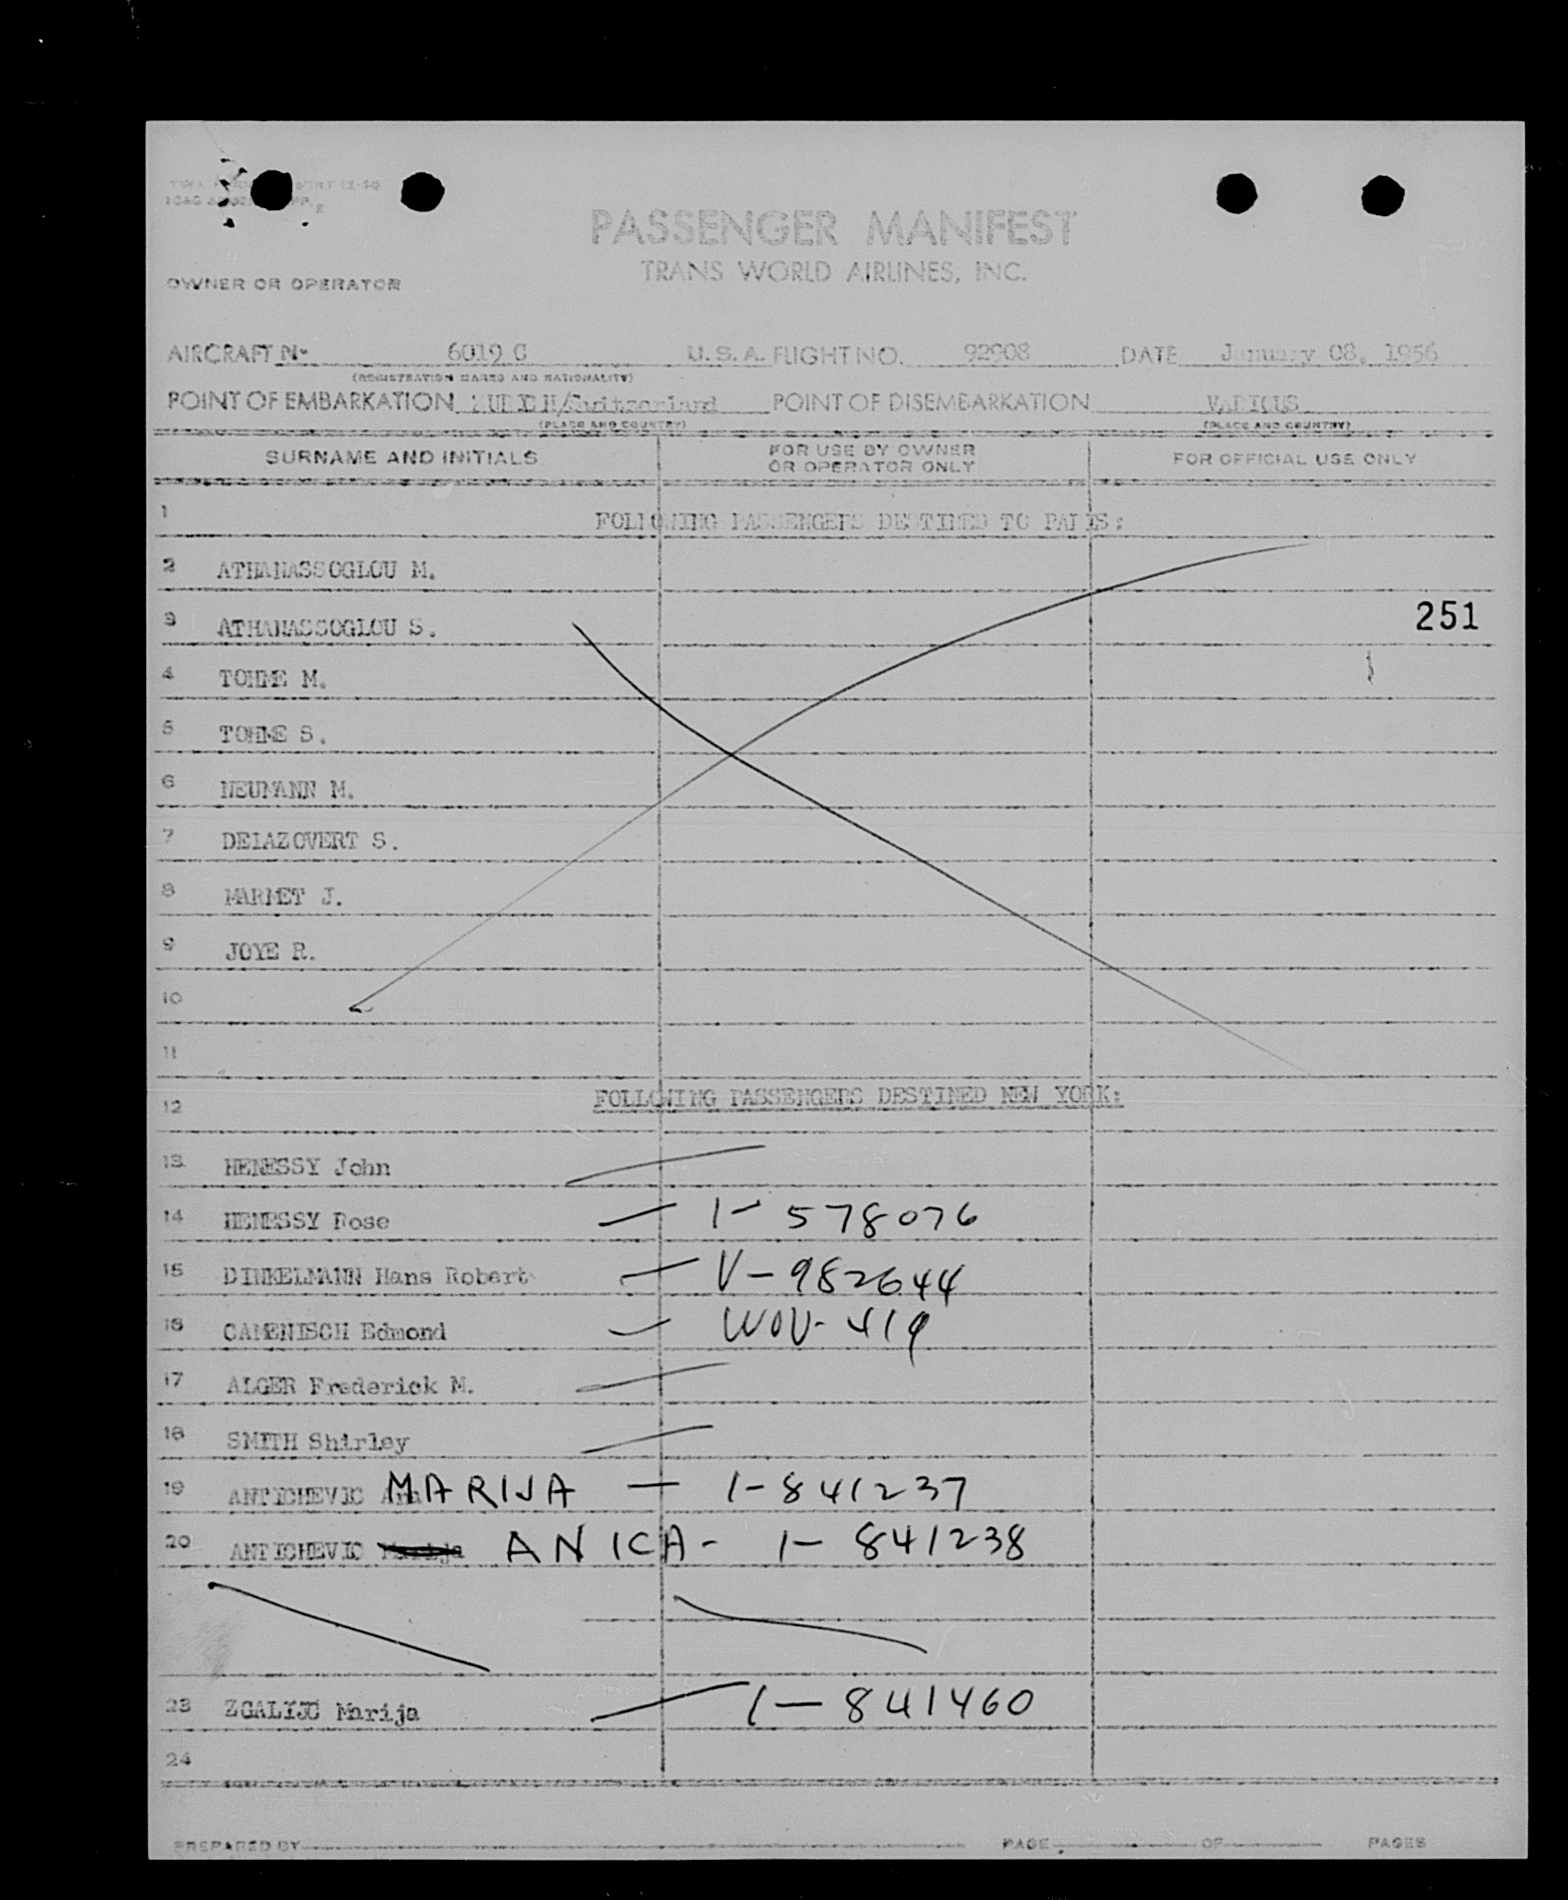 PASSENGER MANIFEST
TRANS WORLD AIRLINES, INC.
OWNER OR OPERATOR
AIRCRAFT No 6019 C U.S.A. FLIGHT NO. 92908 DATE January 08, 1956
(REGISTRATION MARKS AND NATIONALITY)
POINT OF EMBARKATION ZURICH/Switzerland POINT OF DISEMBARKATION VARIOUS
(PLACE AND COUNTRY) (PLACE AND COUNTRY)
SURNAME AND INITIALS FOR USE BY OWNER OR OPERATOR ONLY FOR OFFICIAL USE ONLY
1 FOLLOWING PASSENGERS DESTINED TO PARIS:
2 ATHANASSOGLOU M.
3 ATHANASSOGLOU S. 251
4 TOHME M.
5 TOHME S.
6 NEUMANN M.
7 DELAZOVERT S.
8 MARMET J.
9 JOYE R.
10
11
12 FOLLOWING PASSENGERS DESTINED NEW YORK:
13 HENESSY John
14 HENESSY Rose — 1-578076
15 DINKELMANN Hans Robert — V-982644
16 CAMENISCH Edmond — WOV-419
17 ALGER Frederick M.
18 SMITH Shirley
19 ANTICHEVIC MARIJA — 1-841237
20 ANTICHEVIC Marija ANICA - 1-841238
23 ZGALIJC Marija — 1-841460
24
PREPARED BY PAGE OF PAGES